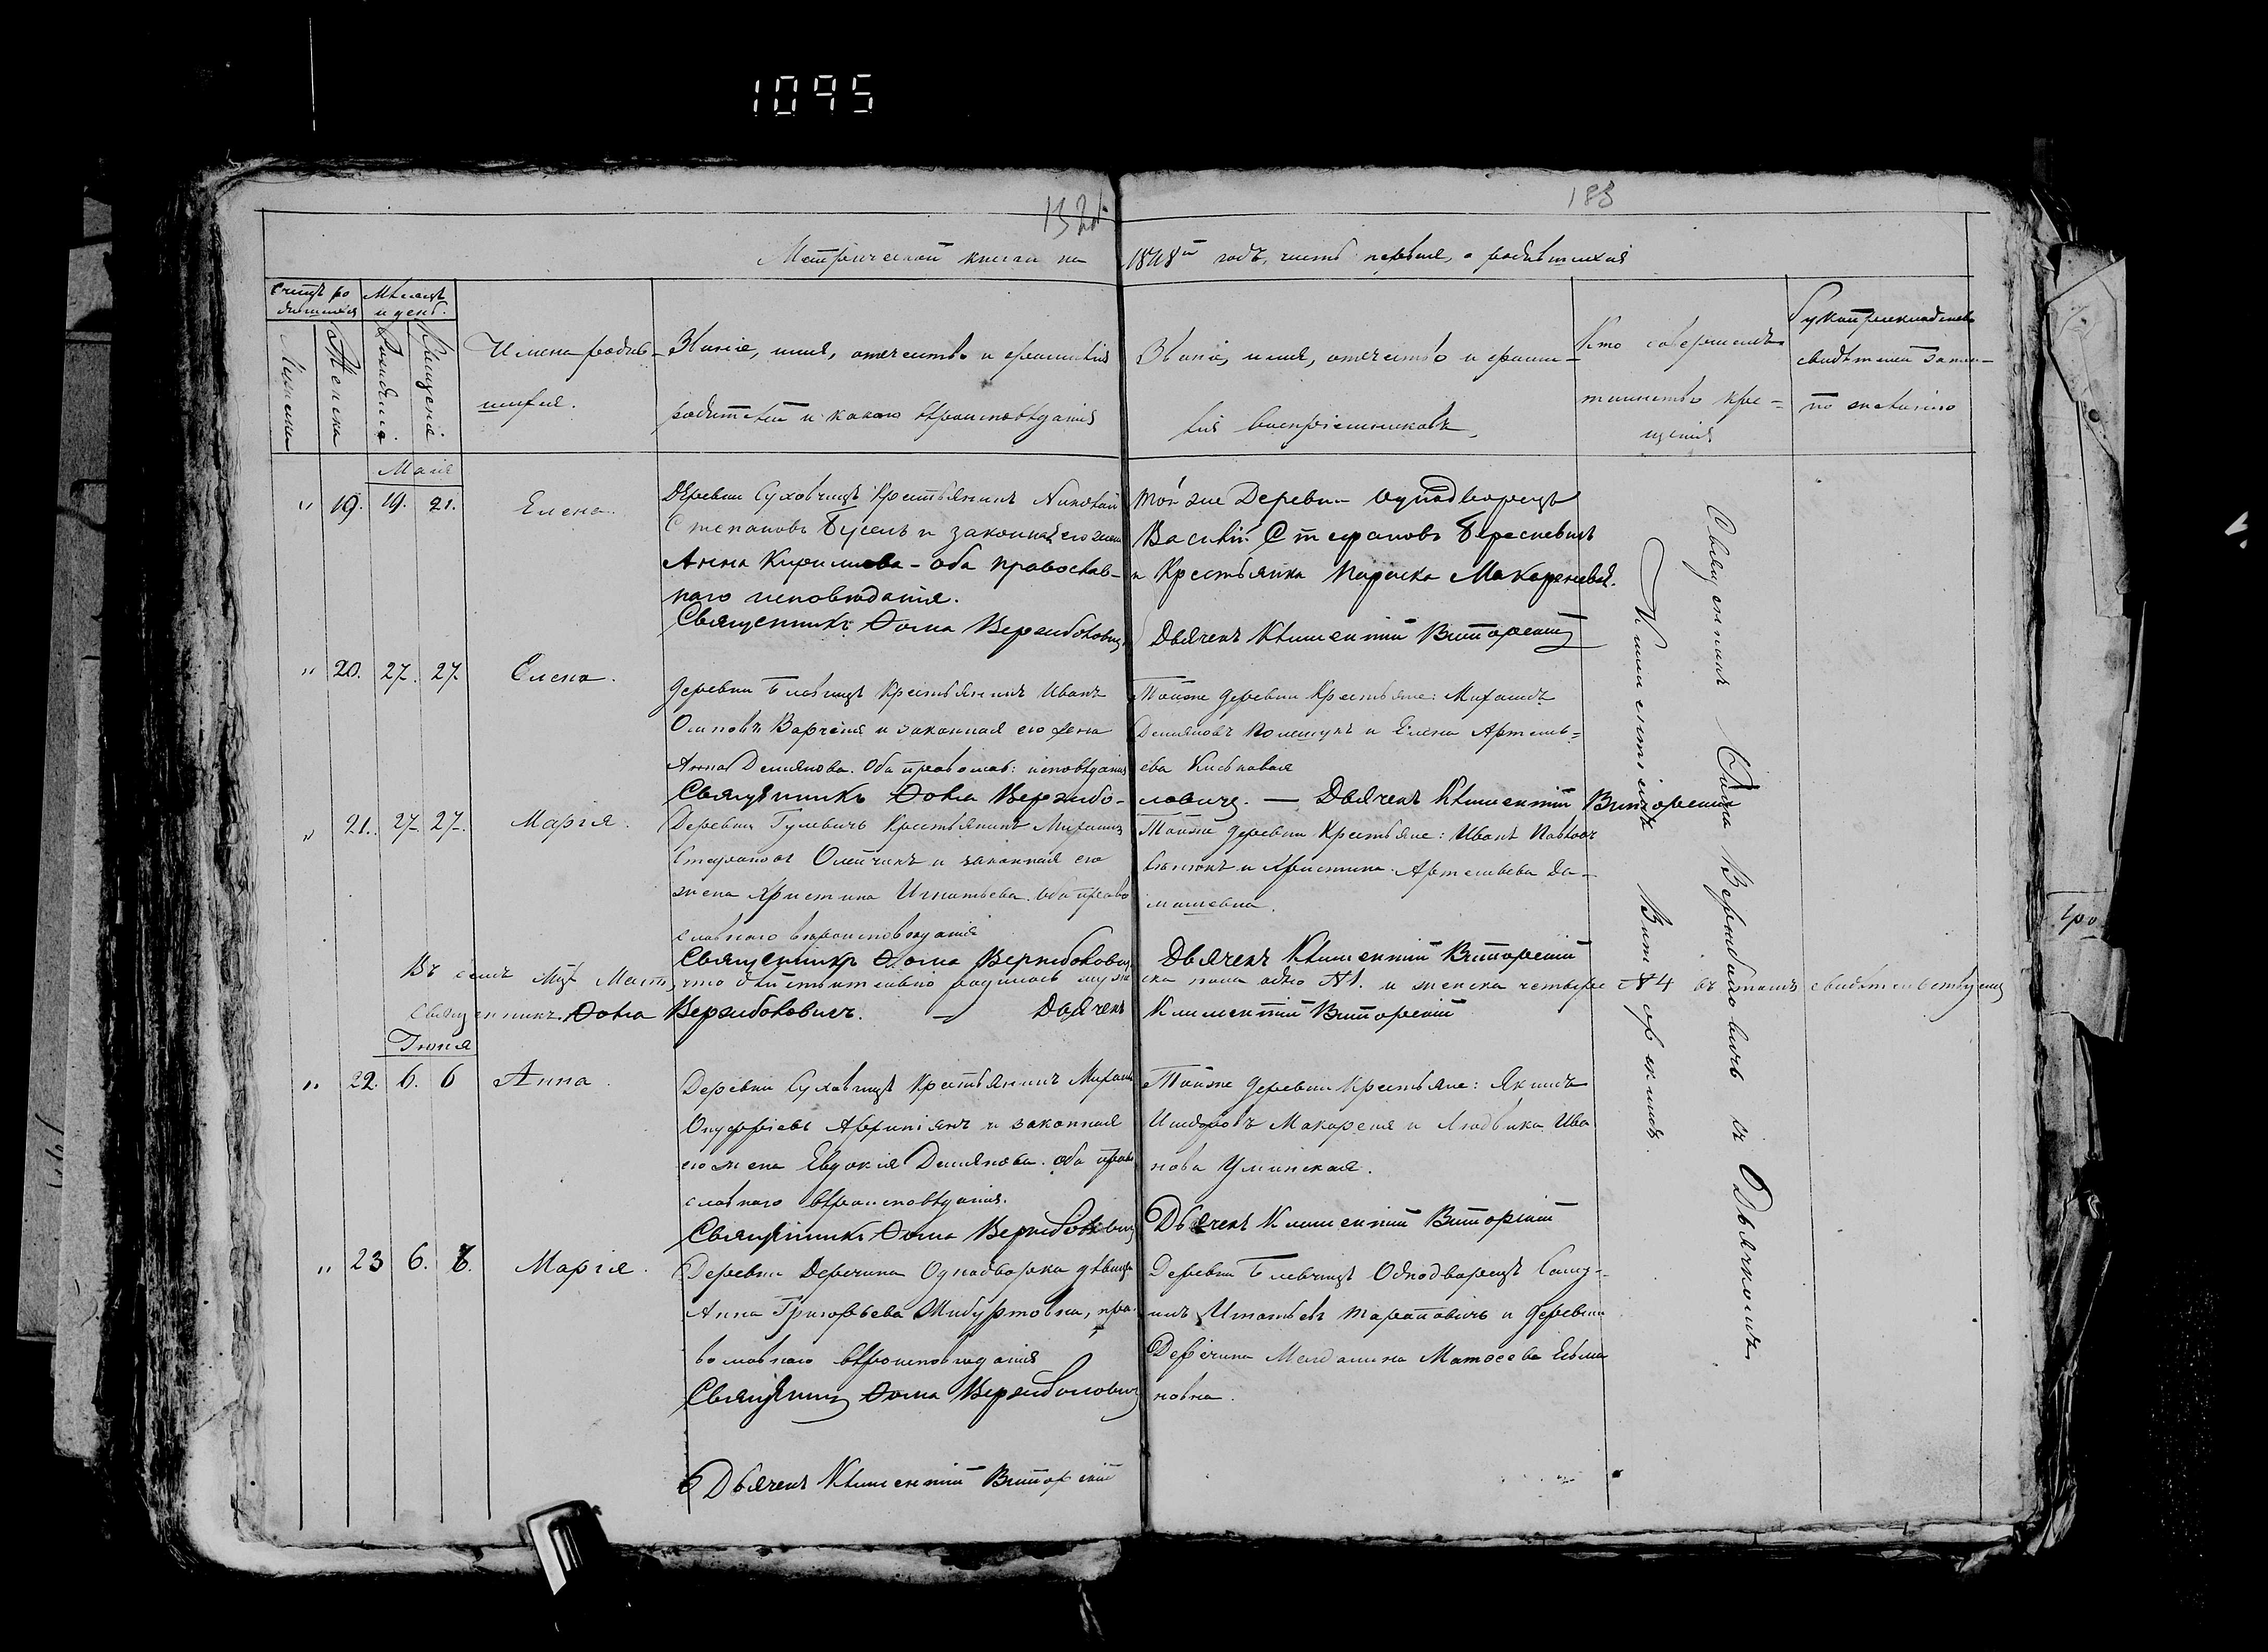 1095
132
183
Метрической книги на 1848й годъ, часть первая, о родившихся
Счетъ родившихся
Мѣсяцъ и день.
Мужеска
Женска
Рожденія
Крещенія
Имена родившихся.
Званіе, имя, отечество и фамилія
родителей и какого вѣроисповѣданія
Званіе, имя, отечество и фамилія воспріемниковъ
Кто совершалъ
таинство крещенія
свидѣтелей записи
по желанію
Маія
" 19. 19. 21. Елена.
Деревни Суховчицъ Крестьянинъ Николай
Степановъ Бусель и законная его жена
Анна Кирилова - оба православнаго исповѣданія.
Священникъ Фома Вержболовичъ
Той же Деревни Однодворецъ
Василій Стефановъ Бересневичъ
и Крестьянка Параска Макареневая.
Дьячекъ Климентій Виторскій
" 20. 27. 27. Елена.
Деревни Блевчицъ Крестьянинъ Иванъ
Осиповъ Варченя и законная его жена
Анна Демянова. Оба православ: исповѣданія
Тойже деревни Крестьяне: Михаилъ
Демяновъ Полещукъ и Елена Артемьева
Священникъ Фома Вержболовичъ. — Дьячекъ Климентій Виторскій
" 21. 27. 27. Марія.
Деревни Гулевичъ Крестьянинъ Михаилъ
Стефановъ Олейчикъ и законная его
жена Христина Игнатьева. оба православнаго вѣроисповѣданія
Тойже деревни Крестьяне: Иванъ Павловъ
и Христина Артемьева Домашевна.
Священникъ Фома Вержболовичъ
Дьячекъ Климентій Виторскій
Въ семъ Мцѣ Маѣ, что дѣйствительно родилось мужеска пола одно №1. и женска четыре №4 въ томъ свидѣтельствуемъ
Священникъ Фома Вержболовичъ. — Дьячекъ Климентій Виторскій
Іюня
" 22. 6. 6 Анна.
Деревни Суховчицъ Крестьянинъ Михаилъ
Онуфріевъ и законная
его жена Евдокія Демянова. оба православнаго вѣроисповѣданія.
Тойже деревни Крестьяне: Якимъ
Исидоровъ Макареня и Людвика Иванова Уминская.
Священникъ Фома Вержболовичъ
Дьячекъ Климентій Виторскій
" 23 6. 6. Марія.
Деревни Деречина Однодворка дѣвица
Анна Григорьева Жибуртовна, православнаго вѣроисповѣданія
Священникъ Фома Вержболовичъ
Деревни Блевчицъ Однодворецъ
Игнатьевъ Тарановичъ и деревни
Деречина Магдалина Матвеева
Дьячекъ Климентій Виторскій
Священникъ Фома Вержболовичъ съ Дьячкомъ
Климентіемъ Виторскимъ.